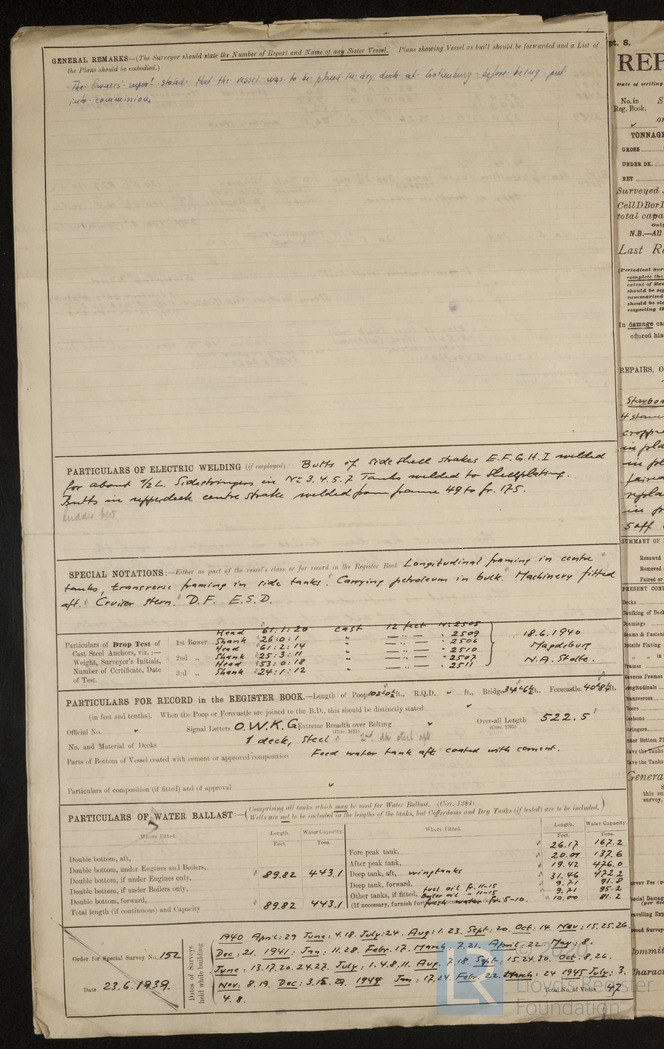 GENERAL REMARKS—(The Surveyor should state the Number of Report and Name of any Sister Vessel. Plans showing Vessel as built should be forwarded and a List of
the Plans should be embodied.)
The Owners' supert stated that the vessel was to be placed in dry dock at Gothenburg before being put
into commission.
PARTICULARS OF ELECTRIC WELDING (if employed) Butts of side shell strakes E.F.G.H.I welded
for about ½ L. Sidestringers in No 3.4.5.7 Tanks welded to Shellplating.
Butts in upperdeck centre strake welded from frame 49 to fr. 175.
SPECIAL NOTATIONS:—Either as part of the vessel's class or for record in the Register Book Longitudinal framing in centre
tanks, transverse framing in side tanks. Carrying petroleum in bulk. Machinery fitted
aft. Cruiser stern. D.F. E.S.D.
Particulars of Drop Test of
Cast Steel Anchors, viz. :—
Weight, Surveyor's Initials,
Number of Certificate, Date
of Test.
1st Bower Head 61:1:20 cast 12 feet N: 2505
Shank 26:0:1 " — " — " 2509
2nd " Head 61:2:14 " — " — " 2506
Shank 25:3:11 " — " — " 2510
3rd " Head 53:0:18 " — " — " 2507
Shank 24:1:12 " — " — " 2511
18.6.1940
Magdeburg
N.A. Stolte.
PARTICULARS FOR RECORD in the REGISTER BOOK.—Length of Poop ft., R.Q.D. " ft., Bridge ft., Forecastle ft.
(in feet and tenths). When the Poop or Forecastle are joined to the B.D., this should be distinctly stated
Official No. " Signal Letters O.W.K.G. Extreme Breadth over Belting " Over-all Length 522.5'
(Circ. 1611) (Circ. 1703)
No. and Material of Decks 1 deck, Steel
Parts of Bottom of Vessel coated with cement or approved composition Feed water tank aft coated with cement.
Particulars of composition (if fitted) and of approval "
PARTICULARS OF WATER BALLAST:—(Comprising all tanks which may be used for Water Ballast. (Circ. 1284)
Wells are not to be included in the lengths of the tanks, but Cofferdams and Dry Tanks (if tested) are to be included.)
Where Fitted. Length. Water Capacity. Where Fitted. Length. Water Capacity.
Feet. Tons. Feet. Tons.
Double bottom, aft, Fore peak tank, 26.17 167.2
Double bottom, under Engines and Boilers, After peak tank, 20.01 137.6
Double bottom, if under Engines only, 89.82 443.1 Deep tank, aft, wingtanks 19.42 476.0
Double bottom, if under Boilers only, Deep tank, forward, 31.46 472.2
fuel oil fr. 11-15 9.71
Double bottom, forward, Other tanks, if fitted, 9.71 95.2
Total length (if continuous) and Capacity 89.82 443.1 (If necessary, furnish fresh water fr. 5-10. 10.00 81.2
Order for Special Survey No. 152
Date 23.6.1939.
Dates of Surveys held while building
1940 April: 29 June: 4.18 July: 24. Aug: 1.23. Sept: 20. Oct: 14. Nov: 15.25.26.
Dec: 21. 1941: Jan: 11.28. Febr: 17. March: 7.21. April: 22. May: 8.
June: 13.17.20.24.27. July: 1.4.8.11. Aug: 7.18. Sept: 15.24.30. Oct: 8.26.
Nov: 8.19. Dec: 3.15.29. 1944 Jan: 17.24. Febr: 22. March: 24 1945 July: 3.
4.8. Total No. of Visits 47
Lloyd's Register
Foundation
pt. 8.
REP
Date of writing
No. in
Reg. Book.
TONNAGE
GROSS
UNDER DK.
NET
Surveyed
Cell.D.Bor.
total capa
N.B.—All
Last Re
In damage ca
offered his
REPAIRS, O
SUMMARY OF
Renewed
Removed
Paired or
PRESENT CON
Decks